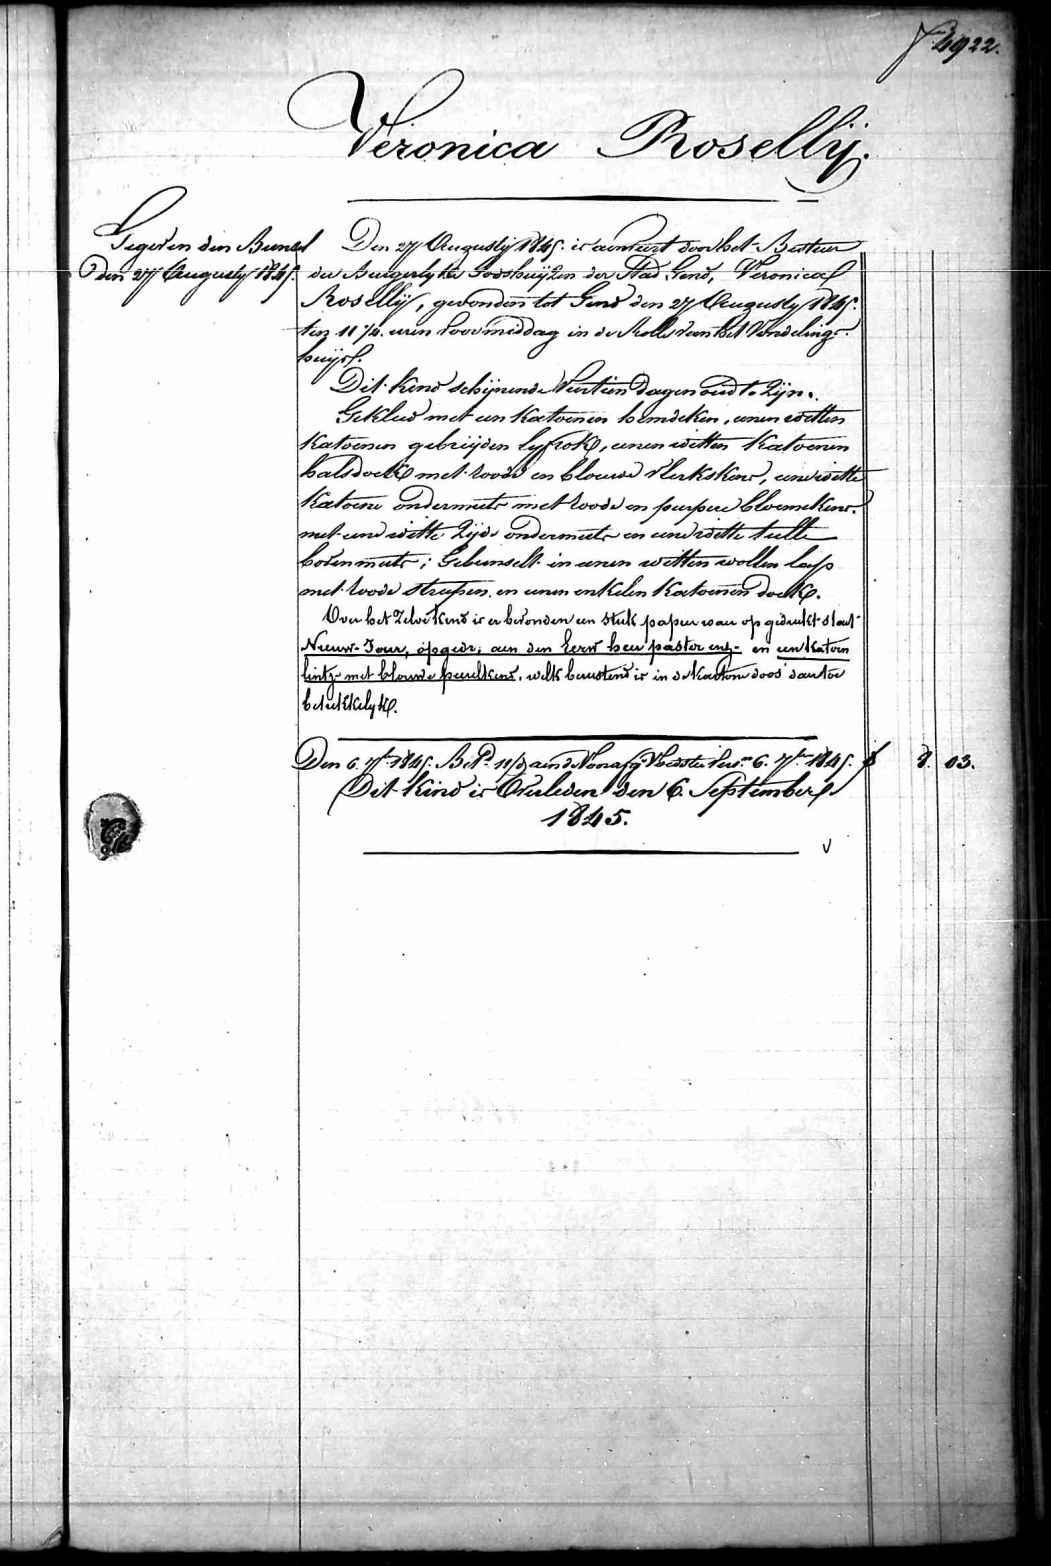 f° 4922.
Veronica Rosellij.
Gegeven den Bunsel
Den 27 Augusty 1845.
Den 27 Augusty 1845. is aenveert door het Bestuer
der Burgerlyke Godshuijzen der Stad Gend, Veronica
Rosellij, gevonden tot Gend den 27 Augusty 1845.
ten 11 1/2 uren voormiddag in de Rolle van het Vondeling-
huijs.
Dit kind schijnende Veertien dagen oud te Zijn.
Gekleed met een katoenen hemdeken, eenen witten
katoenen gebreijden lyfrok, eenen witten katoenen
halsdoek met roode en blauwe vlerkskens, eene witte
katoene ondermuts met roode en purpere bloemekens.
met eene witte Zijde ondermuts en eene witte tulle
bovenmuts; Gebunselt in eenen witten wollen laps
met roode strepen en eenen enkelen katoenen doek.
Over het Zelve kind is er bevonden een stuk papier waer op gedrukt staet
Nieuw-Jaer, opgedr; aen den Eerw heer paster enz- en een katoen
lintj met blouwe peirelkens, welk berustend is in de kartone doos daertoe
betrekkelyk.
Den 6. 7ber 1845. Bet.d aen de Voedster 6. 7ber 1845. f 8. 03.
Dit kind is Overleden den 6. September
1845.
v